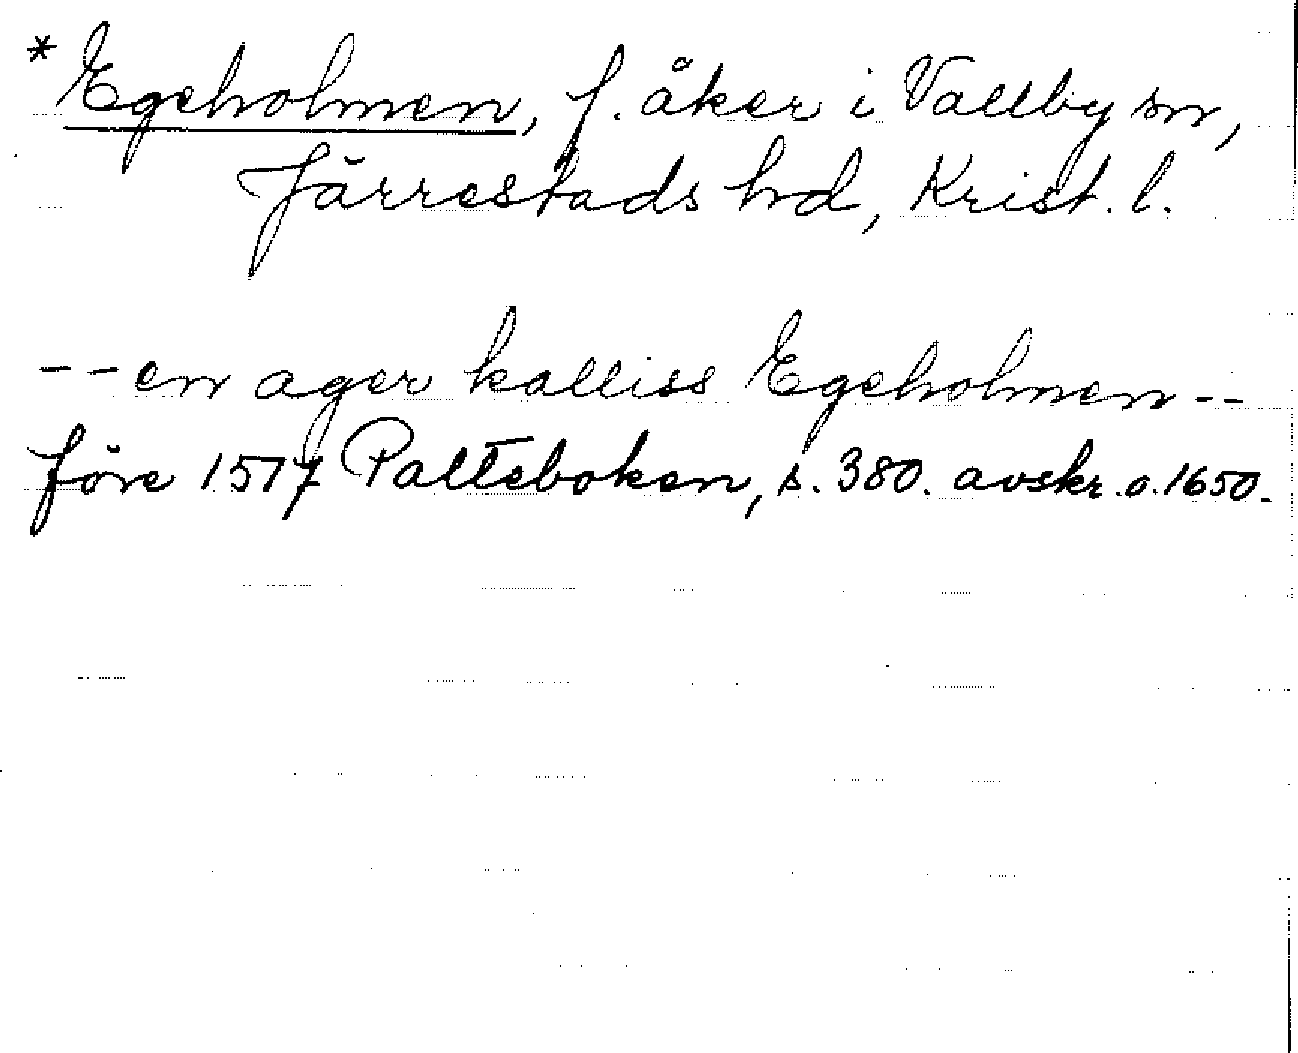 *Egeholmen, f. åker i Vallby sn,
Järrestads hd, Krist. l.
-- en ager kalliss Egeholmen --
före 1517 Palteboken, s. 380. avskr. o. 1650.